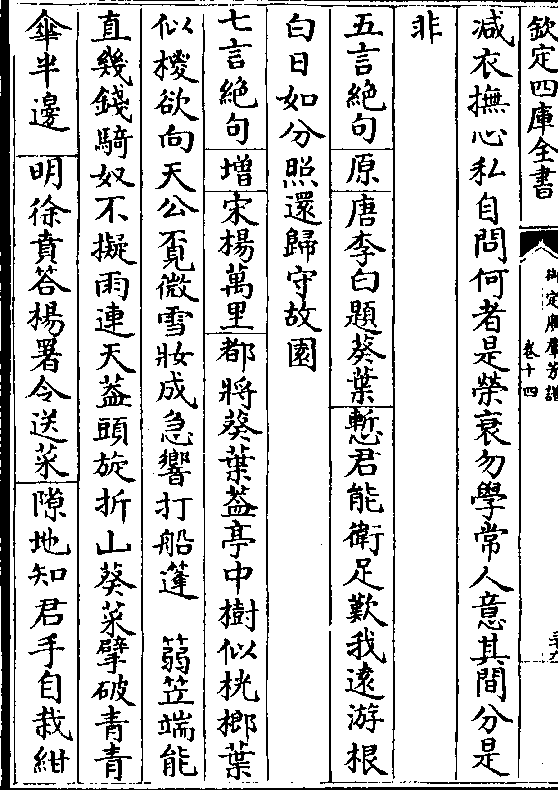 欽定四庫全書
御定廣羣芳譜
卷十四
減衣撫心私自問何者是榮衰勿學常人意其間分是
非
五言絶句原唐李白題葵葉慙君能衛足歎我逺游根
白日如分照還歸守故園
七言絶句增宋楊萬里都將葵葉葢亭中樹似桄榔葉
似椶欲向天公覔微雪妝成急響打船蓬　篛笠端能
直幾錢騎奴不擬雨連天葢頭旋折山葵菜擘破青青
傘半邊　明徐賁答楊署令送菜隙地知君手自栽紺